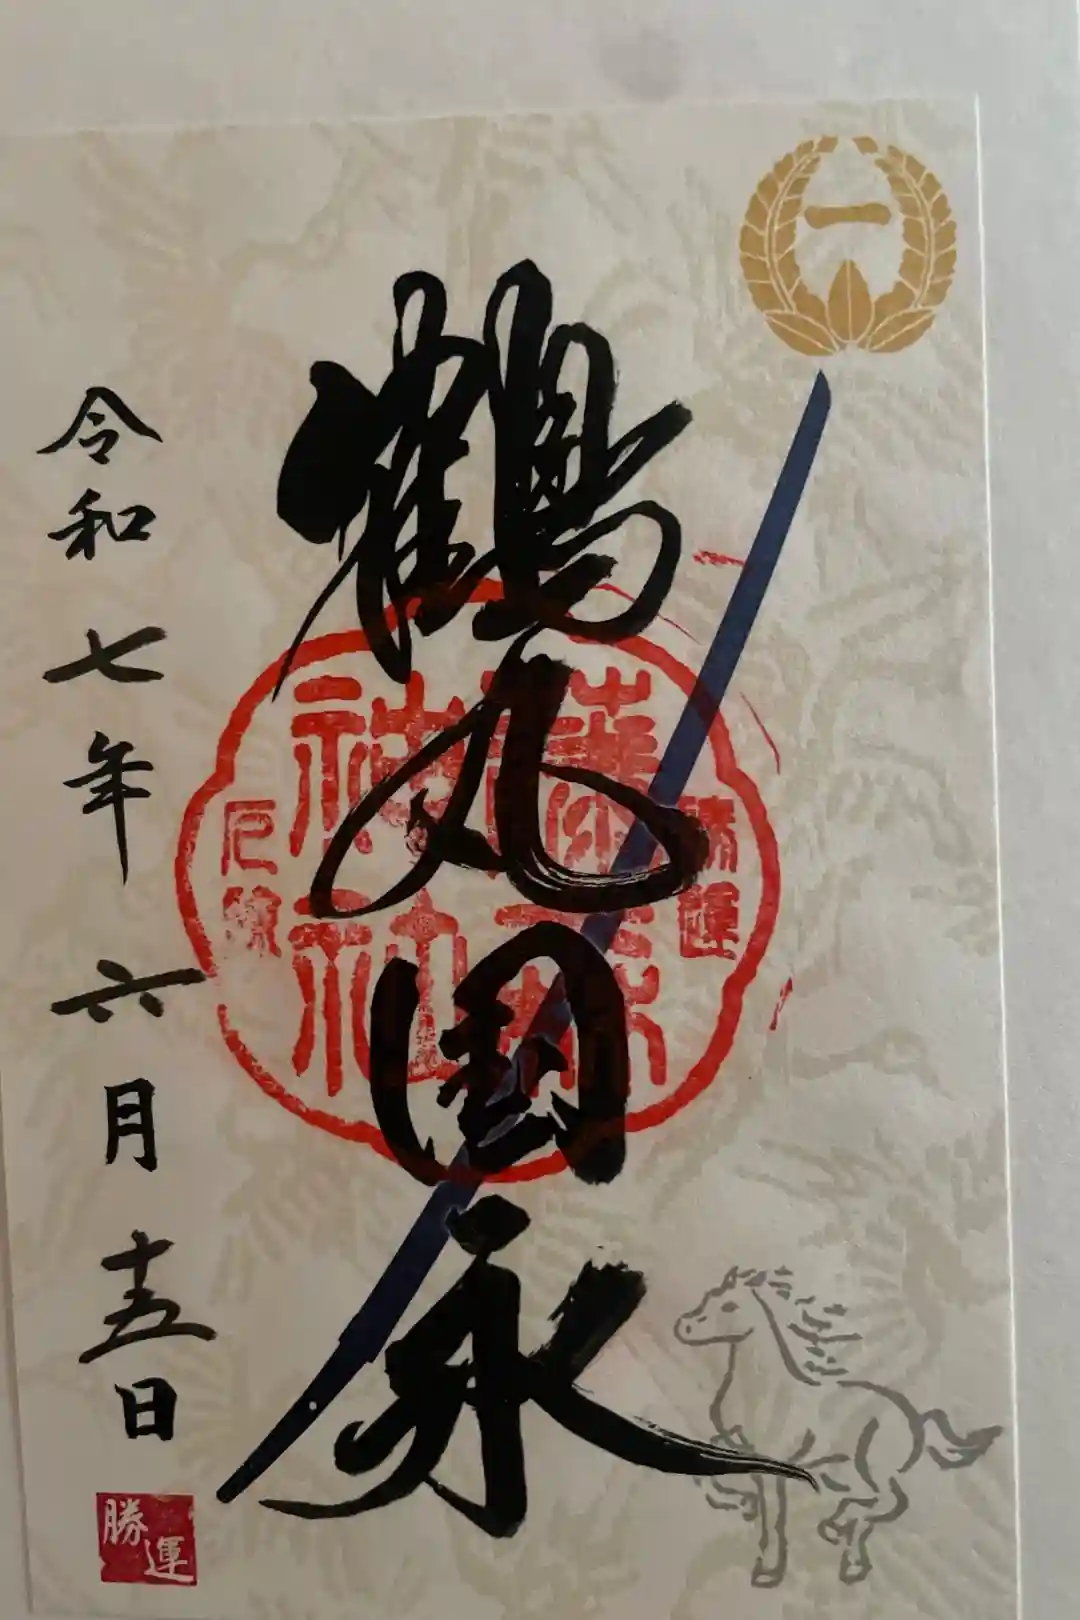 一
鶴丸国永
勝運
藤森
神社
令和七年六月十五日
勝運